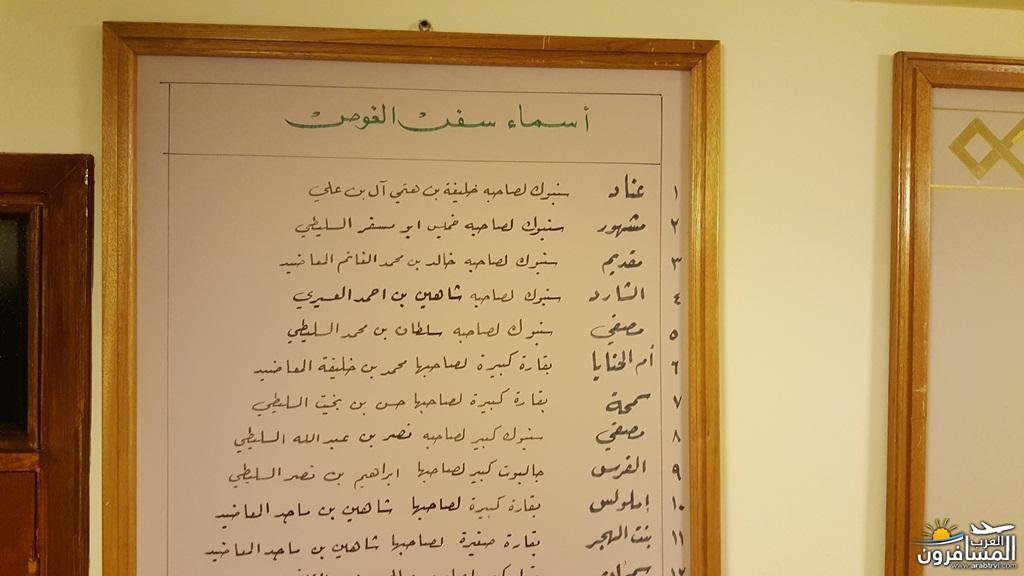 أسماء سفن الغوص
١ عناد سنبوك لصاحبه خليفة بن هتمي آل بن علي
٢ مشهور سنبوك لصاحبه خميس ابو مسفر السليطي
٣ مقديم سنبوك لصاحبه خالد بن محمد الغانم المعاضيد
٤ الشارد سنبوك لصاحبه شاهين بن احمد العسيري
٥ مصفي سنبوك لصاحبه سلطان بن محمد السليطي
٦ أم الحنايا بقارة كبيرة لصاحبها محمد بن خليفة المعاضيد
٧ سمحة بقارة كبيرة لصاحبها حسن بن بخيت السليطي
٨ مصفي سنبوك كبير لصاحبه نصر بن عبد الله السليطي
٩ الفرس جالبوت كبير لصاحبها ابراهيم بن نصر السليطي
١٠ إملولس بقارة كبيرة لصاحبها شاهين بن ماجد المعاضيد
١١ بنت الهجر بقارة صغيرة لصاحبها شاهين بن ماجد المعاضيد
١٢
العرب المسافرون
www.arabtrvl.com